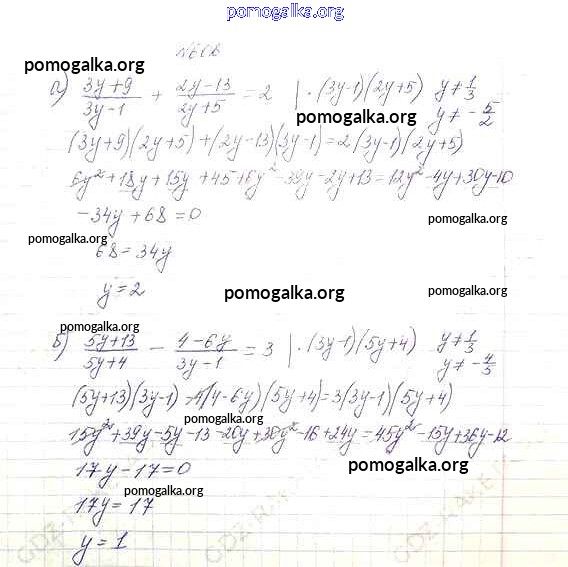 pomogalka.org
№602
pomogalka.org
а) (3y+9)/(3y-1) + (2y-13)/(2y+5) = 2 | ·(3y-1)(2y+5) y≠1/3
pomogalka.org
y≠ -5/2
(3y+9)(2y+5)+(2y-13)(3y-1)=2(3y-1)(2y+5)
6y²+18y+15y+45+6y²-39y-2y+13=12y²-4y+30y-10
-34y+68=0
pomogalka.org
pomogalka.org
68=34y
y=2
pomogalka.org
pomogalka.org
pomogalka.org
б) (5y+13)/(5y+4) - (4-6y)/(3y-1) = 3 | ·(3y-1)(5y+4) y≠1/3
y≠ -4/5
(5y+13)(3y-1)-(4-6y)(5y+4)=3(3y-1)(5y+4)
pomogalka.org
15y²+39y-5y-13-20y+30y²-16+24y=45y²-15y+36y-12
17y-17=0
pomogalka.org
pomogalka.org
17y=17
y=1